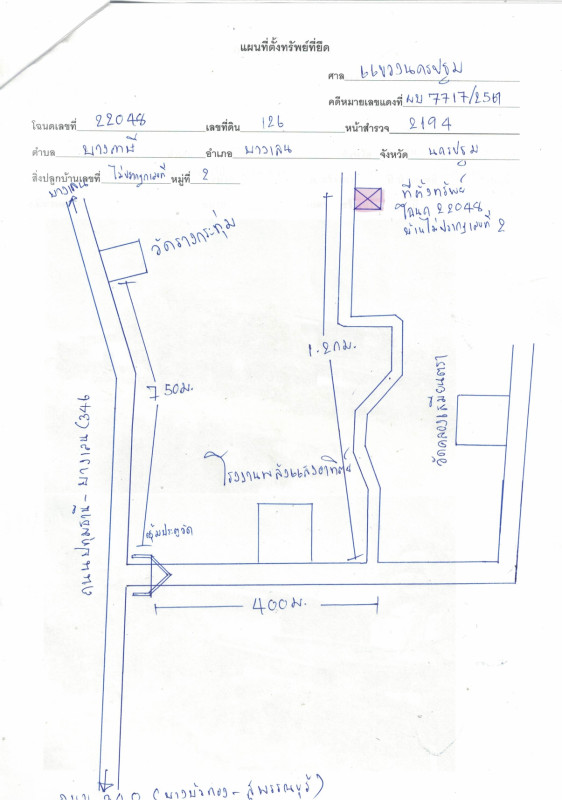 แผนที่ตั้งทรัพย์ที่ยึด
ศาล แขวงนครปฐม
คดีหมายเลขแดงที่ ผบ 7717/2561
โฉนดเลขที่ 22048 เลขที่ดิน 126 หน้าสำรวจ 2194
ตำบล บางภาษี อำเภอ บางเลน จังหวัด นครปฐม
สิ่งปลูกบ้านเลขที่ ไม่ปรากฏเลขที่ หมู่ที่ 2
บางเลน
ที่ตั้งทรัพย์
โฉนด 22048
บ้านไม่ปรากฏเลขที่ 2
วัดรางกระทุ่ม
1.2 กม.
750 ม.
วัดคลองใหม่
โรงงานพลังแสงอาทิตย์
ถนนปทุมธานี - บางเลน (346
ซุ้มประตูวัด
400 ม.
ถนน 340 (บางบัวทอง - สุพรรณบุรี)